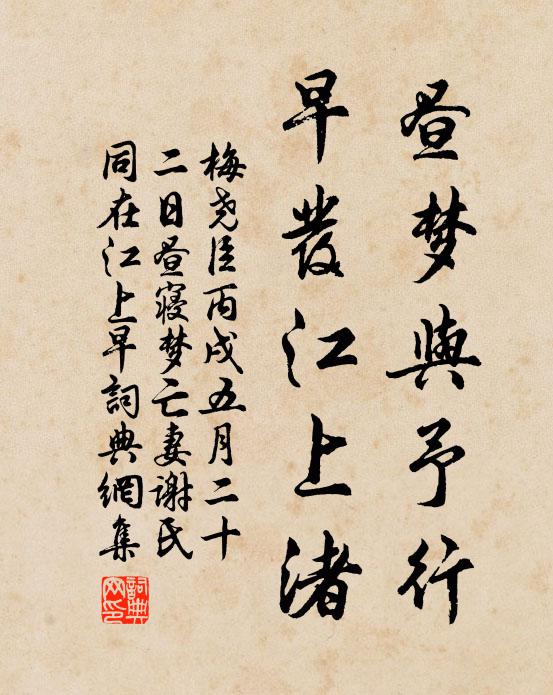 昼梦與予行
早發江上渚
梅尧臣丙戌五月二十
二日昼寝梦亡妻謝氏
同在江上早詞典網集
詞典网印